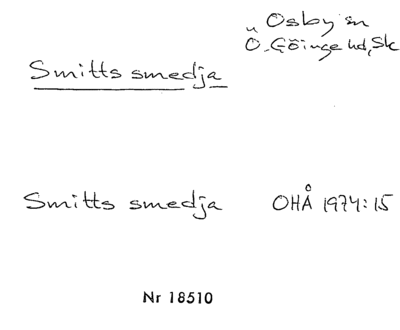 Osby sn
Ö. Göinge hd, Sk
Smitts smedja
Smitts smedja OHÅ 1974:15
Nr 18510